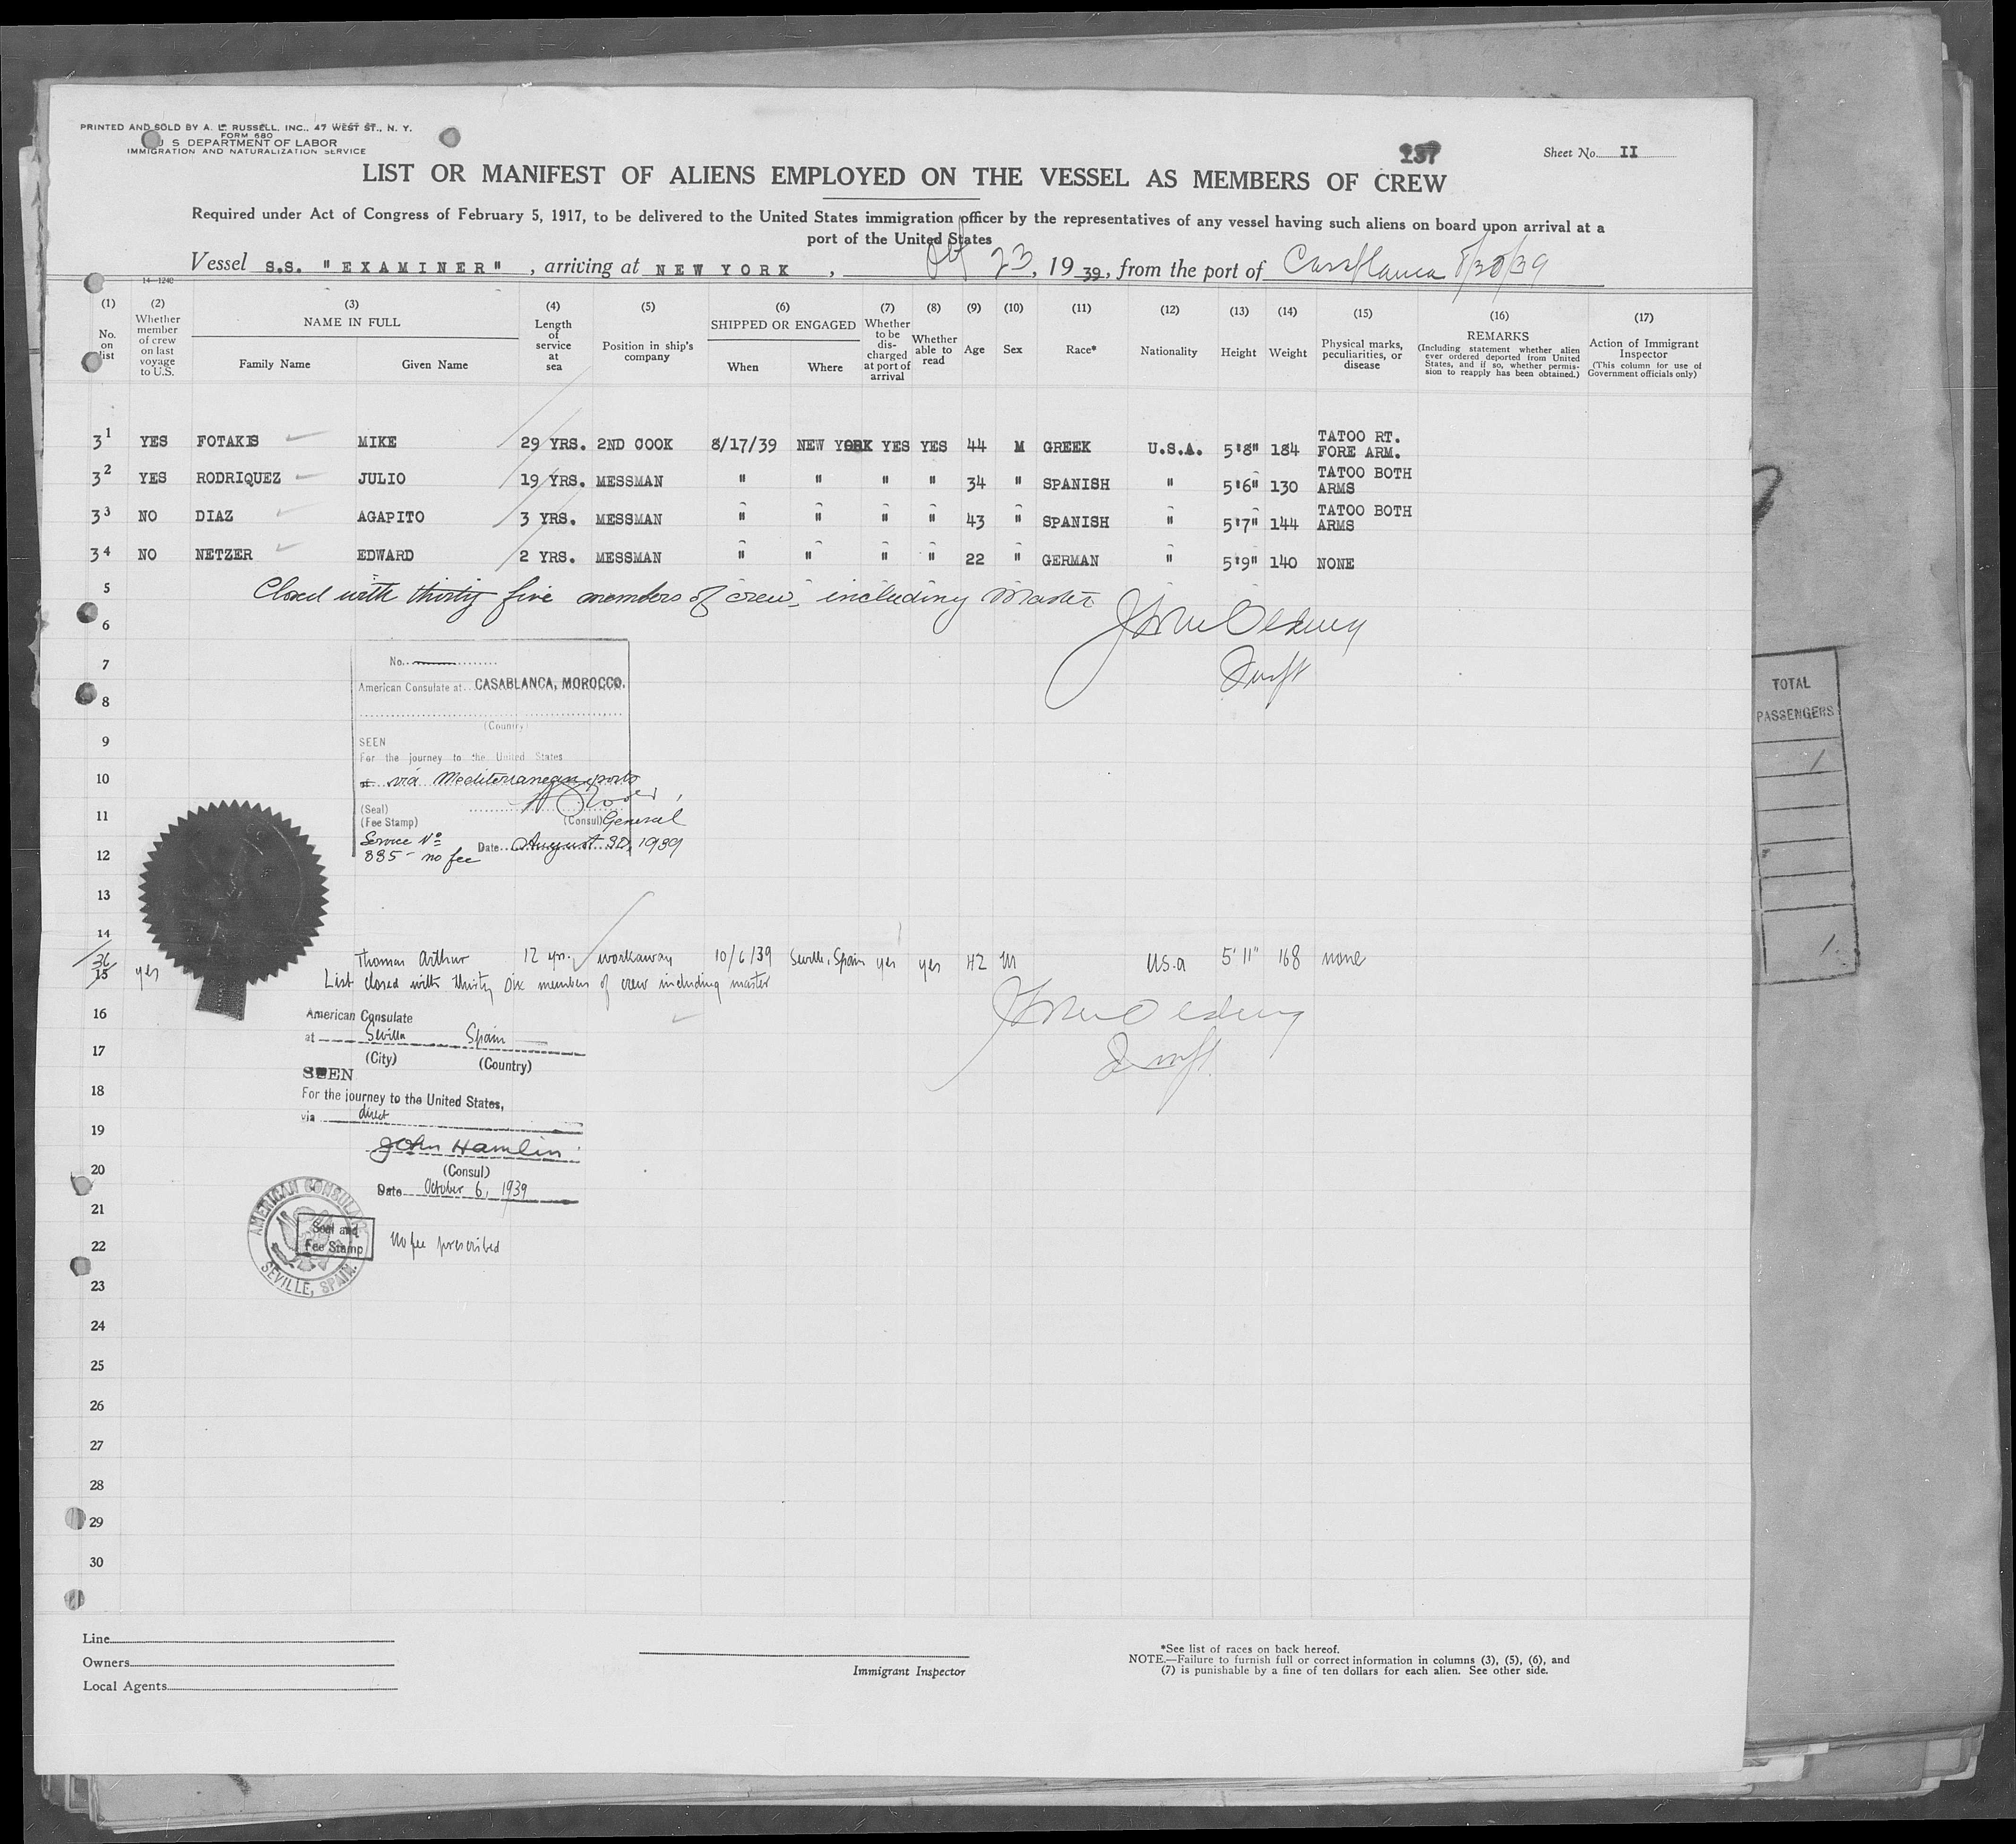 PRINTED AND SOLD BY A. L. RUSSELL, INC., 47 WEST ST., N. Y.
FORM 680
U S DEPARTMENT OF LABOR
IMMIGRATION AND NATURALIZATION SERVICE
137
Sheet No. II
LIST OR MANIFEST OF ALIENS EMPLOYED ON THE VESSEL AS MEMBERS OF CREW
Required under Act of Congress of February 5, 1917, to be delivered to the United States immigration officer by the representatives of any vessel having such aliens on board upon arrival at a
port of the United States
Vessel S.S. "EXAMINER", arriving at NEW YORK, Oct 23, 1939, from the port of Casablanca 8/30/39
14-1240
(1) (2) (3) (4) (5) (6) (7) (8) (9) (10) (11) (12) (13) (14) (15) (16) (17)
No. on list
Whether member of crew on last voyage to U.S.
NAME IN FULL
Family Name Given Name
Length of service at sea
Position in ship's company
SHIPPED OR ENGAGED
When Where
Whether to be discharged at port of arrival
Whether able to read
Age
Sex
Race*
Nationality
Height
Weight
Physical marks, peculiarities, or disease
REMARKS
(Including statement whether alien ever ordered deported from United States, and if so, whether permission to reapply has been obtained.)
Action of Immigrant Inspector
(This column for use of Government officials only)
31 YES FOTAKIS MIKE 29 YRS. 2ND COOK 8/17/39 NEW YORK YES YES 44 M GREEK U.S.A. 5'8" 184 TATOO RT. FORE ARM.
32 YES RODRIQUEZ JULIO 19 YRS. MESSMAN " " " " 34 " SPANISH " 5'6" 130 TATOO BOTH ARMS
33 NO DIAZ AGAPITO 3 YRS. MESSMAN " " " " 43 " SPANISH " 5'7" 144 TATOO BOTH ARMS
34 NO NETZER EDWARD 2 YRS. MESSMAN " " " " 22 " GERMAN " 5'9" 140 NONE
5 Closed with thirty five members of crew including Master
6
7
No.
American Consulate at CASABLANCA, MOROCCO.
8
(Country)
9
SEEN
For the journey to the United States
10
via Mediterranean ports
11
(Seal)
(Fee Stamp) (Consul) General
Service No
885 - no fee Date August 30, 1939
12
13
14
36
15 yes Thomas Arthur 12 yrs. workaway 10/6/39 Seville, Spain yes yes 42 M U.S.A 5'11" 168 none
List closed with thirty six members of crew including master
16
American Consulate
at Sevilla Spain
17
(City) (Country)
SEEN
18
For the journey to the United States,
via direct
19
John Hamlin
20
(Consul)
Date October 6, 1939
21
AMERICAN CONSULATE
SEVILLE, SPAIN.
Seal and
Fee Stamp
22
No fee prescribed
23
24
25
26
27
28
29
30
Line
Owners
Local Agents
Immigrant Inspector
*See list of races on back hereof.
NOTE.—Failure to furnish full or correct information in columns (3), (5), (6), and
(7) is punishable by a fine of ten dollars for each alien. See other side.
TOTAL
PASSENGERS
1
1